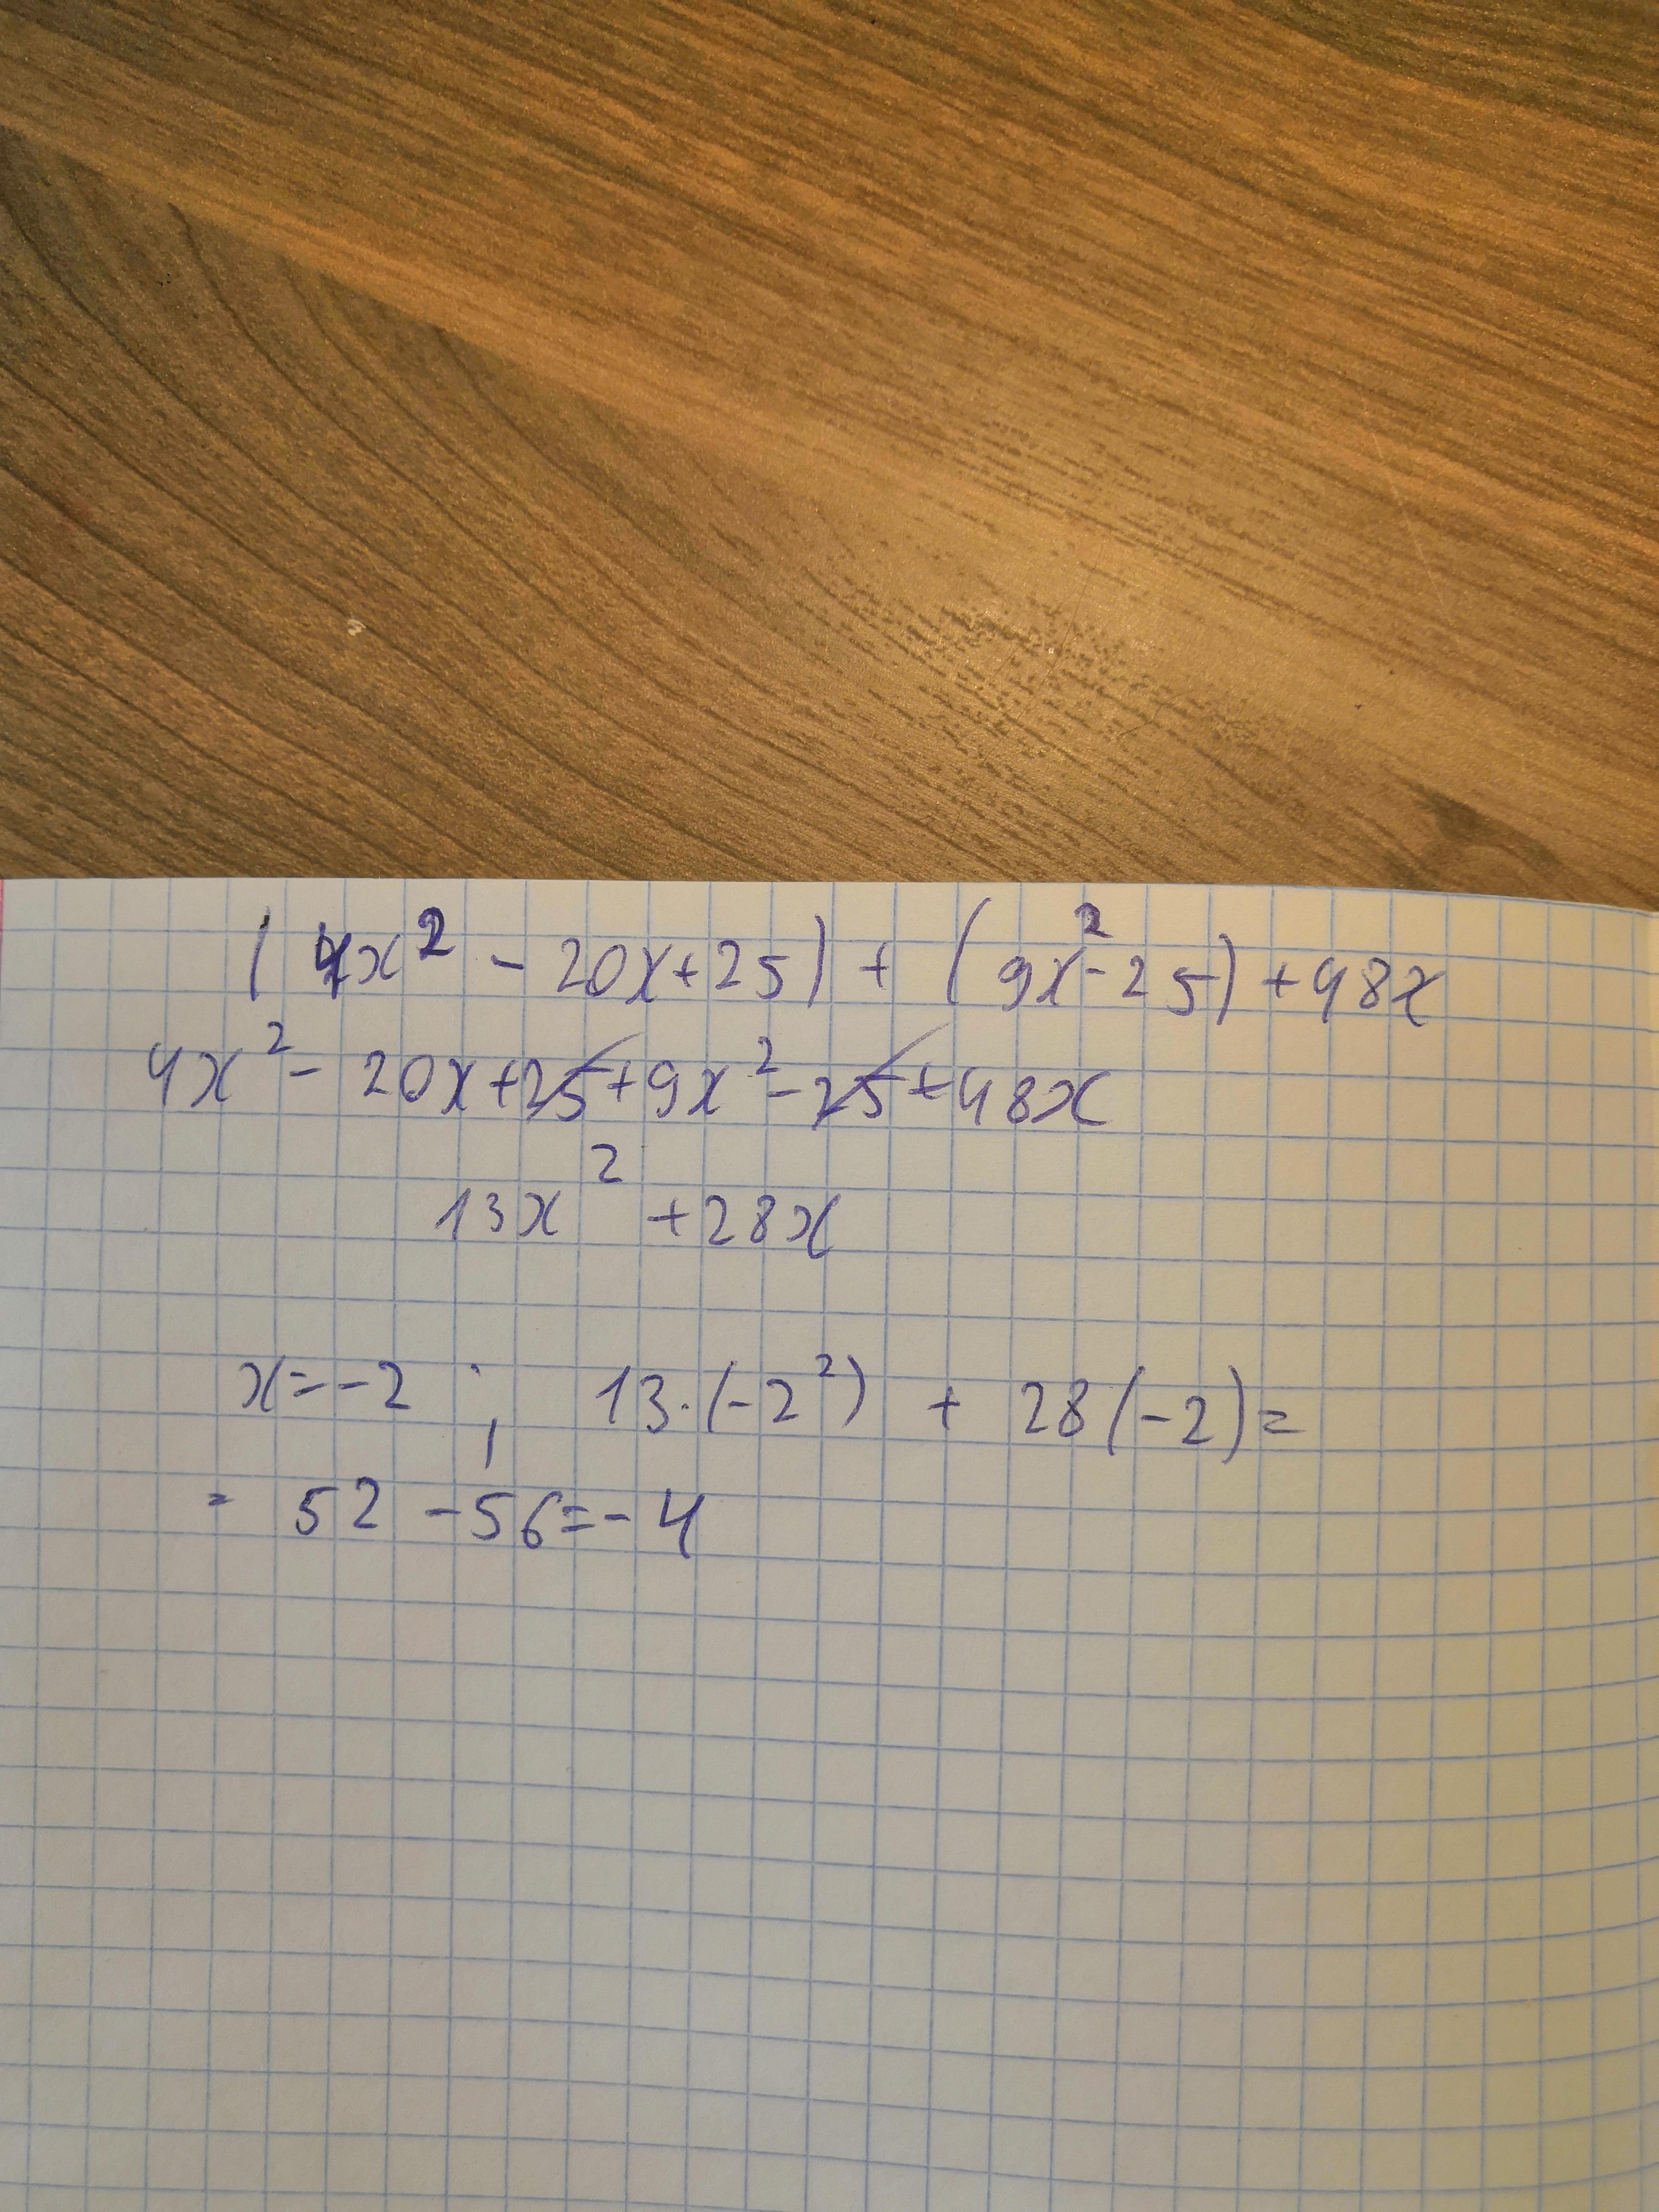 (4x² - 20x+25) + (9x²-25) +48x
4x² - 20x+25+9x²-25+48x
13x² +28x
x=-2 ; 13·(-2²) + 28(-2)=
= 52 -56=-4